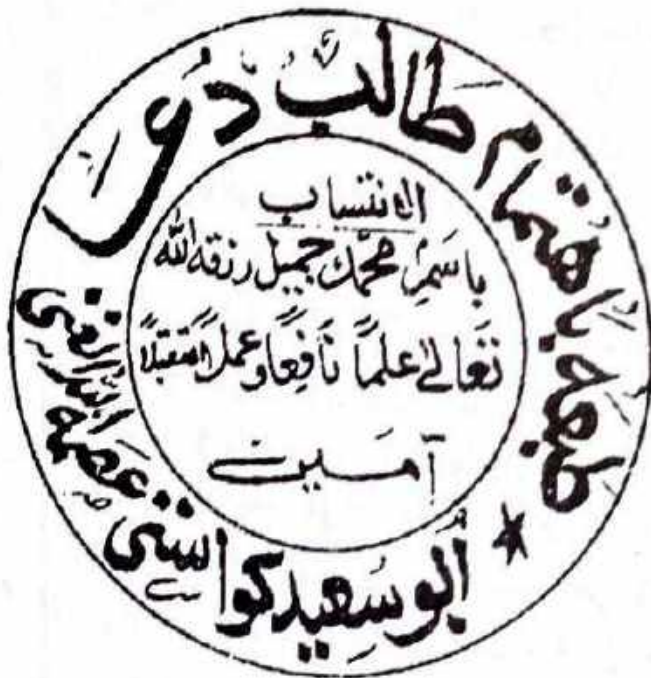 طبعه باهتمام طالب دُعا
ابو سعید کواستی عصمه الله الغنی
الانتساب
باسمِ محمّد جمیل رزقه الله
تعالےٰ علماً نافعاً وعملاً متقبلاً
آمین